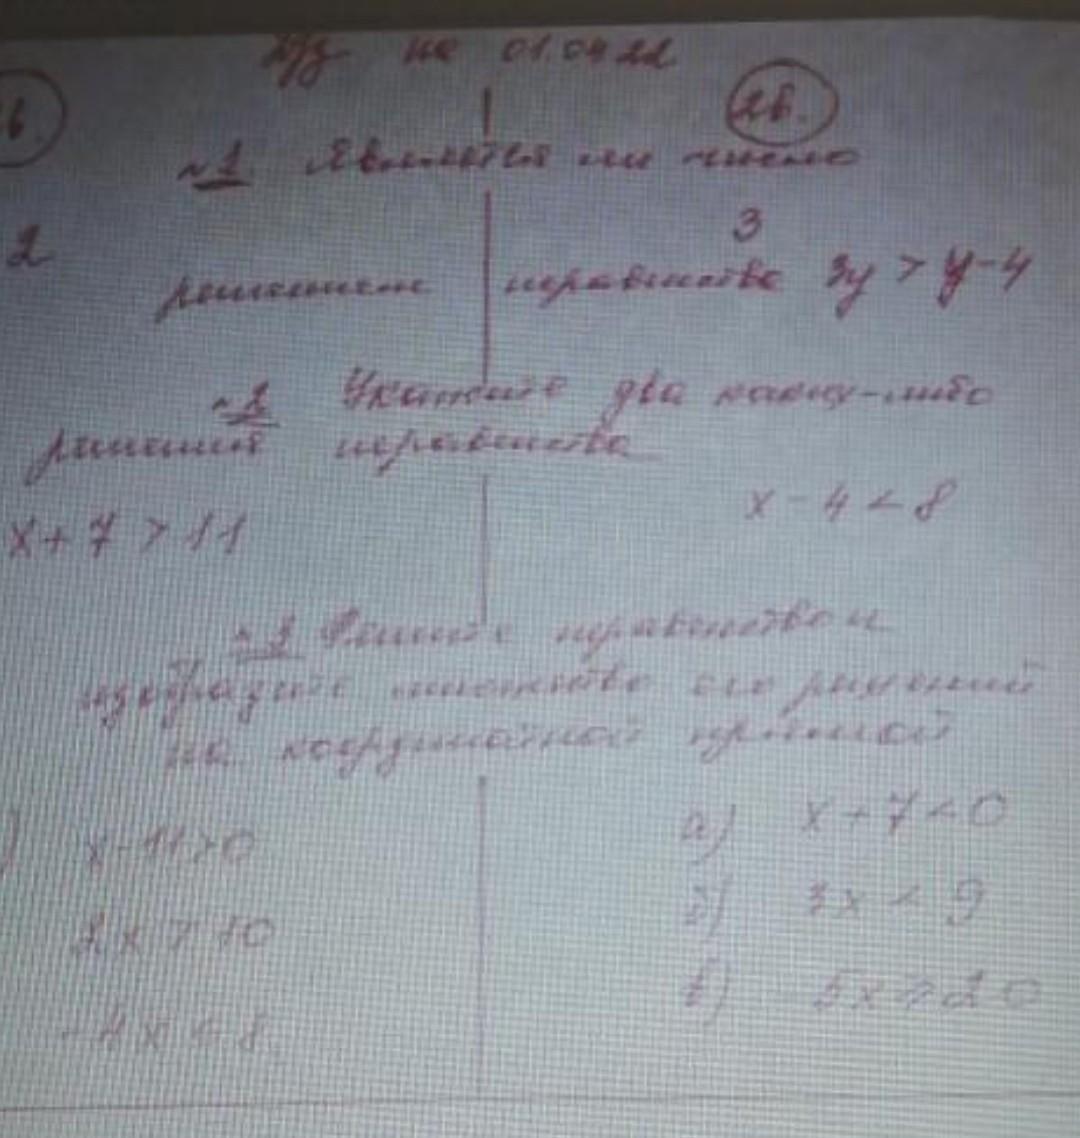 Д/з на 01.04.22
в. 2в.
№1 Является ли число
2 3
решением неравенства 3y > y-4
№2 Укажите два каких-либо
решений неравенства
x + 7 > 11 x - 4 < 8
№3 Решите неравенство и
изобразите множество его решений
на координатной прямой
) x - 11 > 0 а) x + 7 < 0
2x > 10 б) 3x < 9
-4x ≤ 8 в) 5x ≥ 20